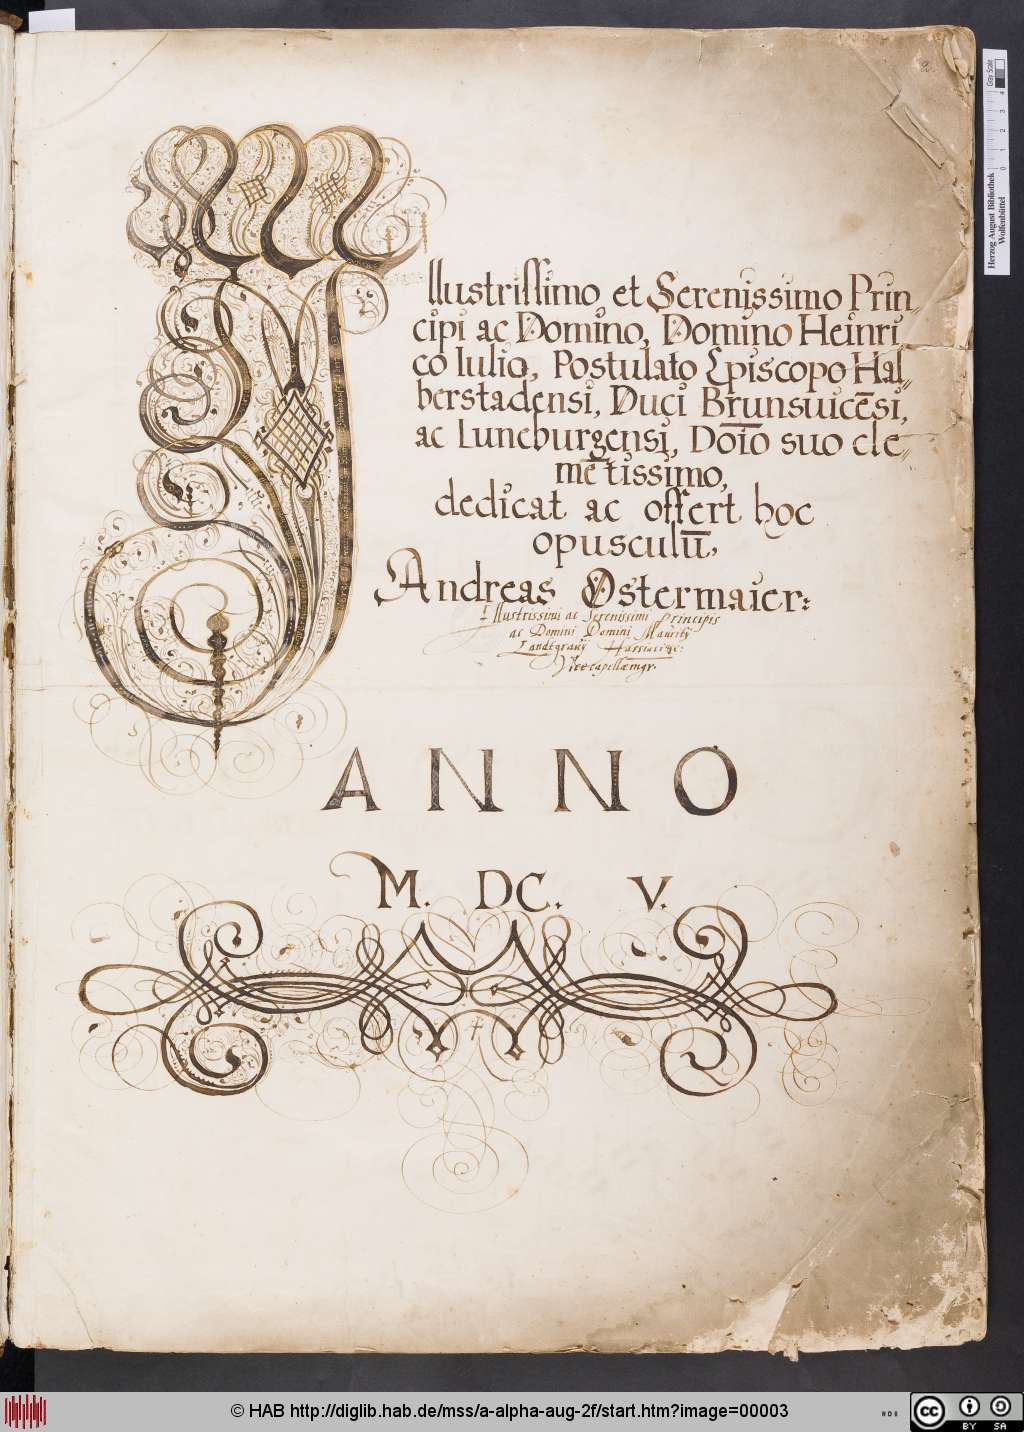 Illustrissimo et Serenissimo Prin„
cipi ac Domino, Domino Heinri
co Iulio, Postulato Episcopo Hal„
berstadensi, Duci Brunsuicēsi,
ac Luneburgensi, Dōīo suo cle„
mētissimo,
dedicat ac offert hoc
opusculū,
Andreas Ostermaier:
Illustrissimi ac Serenissimi Principis
ac Domini Domini Mauritÿ
Landtgravÿ Hassiae &c:
Vicecapellæ mgr.
ANNO
M. DC. V.
Gray Scale
0 1 2 3 4
Herzog August Bibliothek
Wolfenbüttel
© HAB http://diglib.hab.de/mss/a-alpha-aug-2f/start.htm?image=00003
cc BY SA